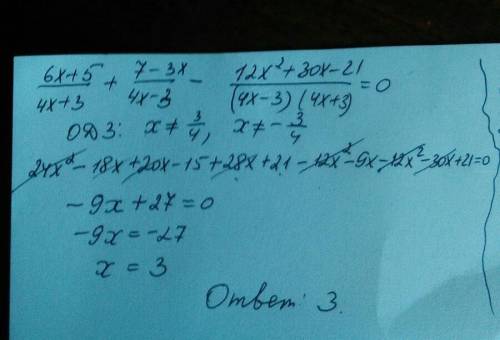 (6x+5)/(4x+3) + (7-3x)/(4x-3) - (12x²+30x-21)/((4x-3)(4x+3)) = 0
ОДЗ: x ≠ 3/4, x ≠ -3/4
24x² - 18x + 20x - 15 + 28x + 21 - 12x² - 9x - 12x² - 30x + 21 = 0
-9x + 27 = 0
-9x = -27
x = 3
Ответ: 3.